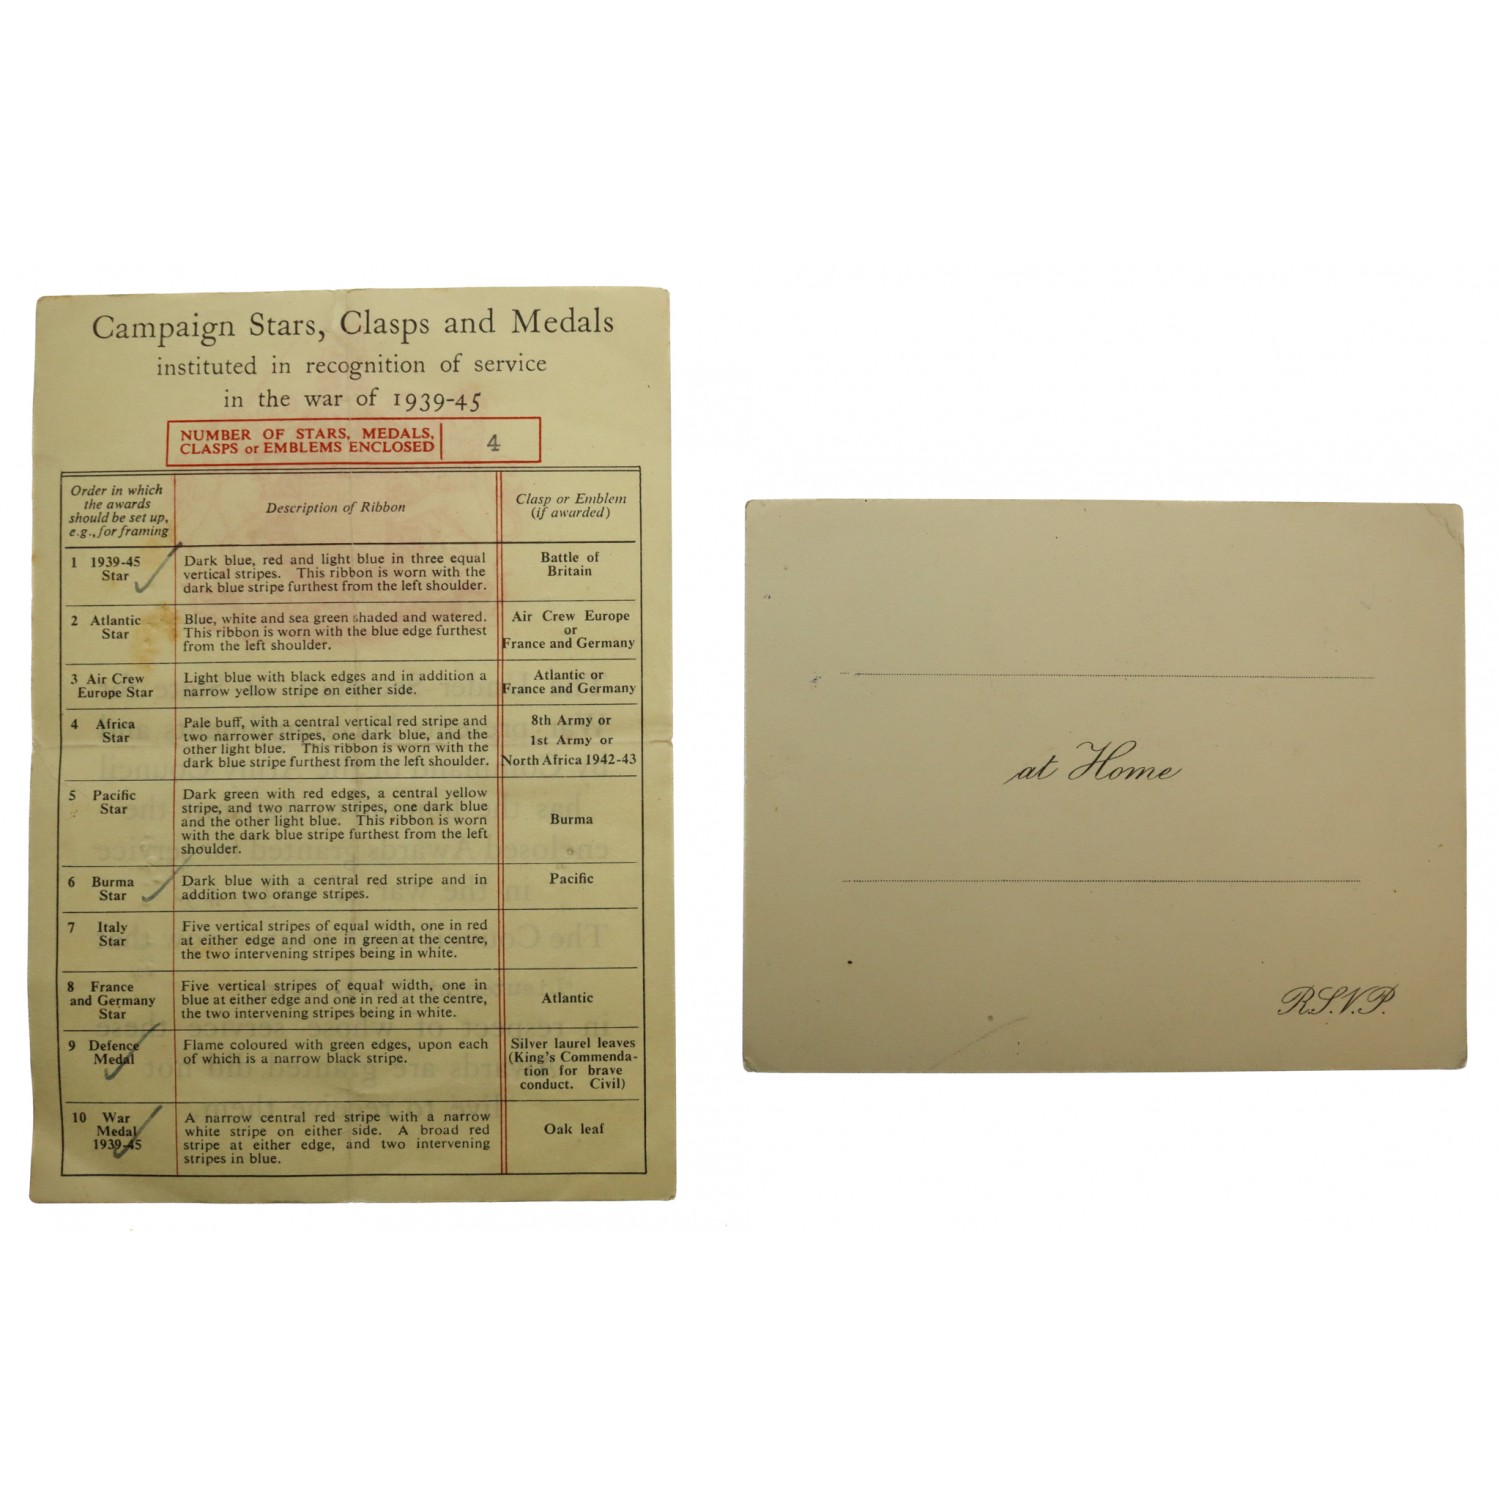 Campaign Stars, Clasps and Medals
instituted in recognition of service
in the war of 1939-45
NUMBER OF STARS, MEDALS,
CLASPS or EMBLEMS ENCLOSED 4
Order in which
the awards
should be set up,
e.g., for framing
Description of Ribbon
Clasp or Emblem
(if awarded)
1 1939-45
Star
Dark blue, red and light blue in three equal
vertical stripes. This ribbon is worn with the
dark blue stripe furthest from the left shoulder.
Battle of
Britain
2 Atlantic
Star
Blue, white and sea green shaded and watered.
This ribbon is worn with the blue edge furthest
from the left shoulder.
Air Crew Europe
or
France and Germany
3 Air Crew
Europe Star
Light blue with black edges and in addition a
narrow yellow stripe on either side.
Atlantic or
France and Germany
4 Africa
Star
Pale buff, with a central vertical red stripe and
two narrower stripes, one dark blue, and the
other light blue. This ribbon is worn with the
dark blue stripe furthest from the left shoulder.
8th Army or
1st Army or
North Africa 1942-43
5 Pacific
Star
Dark green with red edges, a central yellow
stripe, and two narrow stripes, one dark blue
and the other light blue. This ribbon is worn
with the dark blue stripe furthest from the left
shoulder.
Burma
6 Burma
Star
Dark blue with a central red stripe and in
addition two orange stripes.
Pacific
7 Italy
Star
Five vertical stripes of equal width, one in red
at either edge and one in green at the centre,
the two intervening stripes being in white.
8 France
and Germany
Star
Five vertical stripes of equal width, one in
blue at either edge and one in red at the centre,
the two intervening stripes being in white.
Atlantic
9 Defence
Medal
Flame coloured with green edges, upon each
of which is a narrow black stripe.
Silver laurel leaves
(King's Commenda-
tion for brave
conduct. Civil)
10 War
Medal
1939-45
A narrow central red stripe with a narrow
white stripe on either side. A broad red
stripe at either edge, and two intervening
stripes in blue.
Oak leaf
at Home
R.S.V.P.